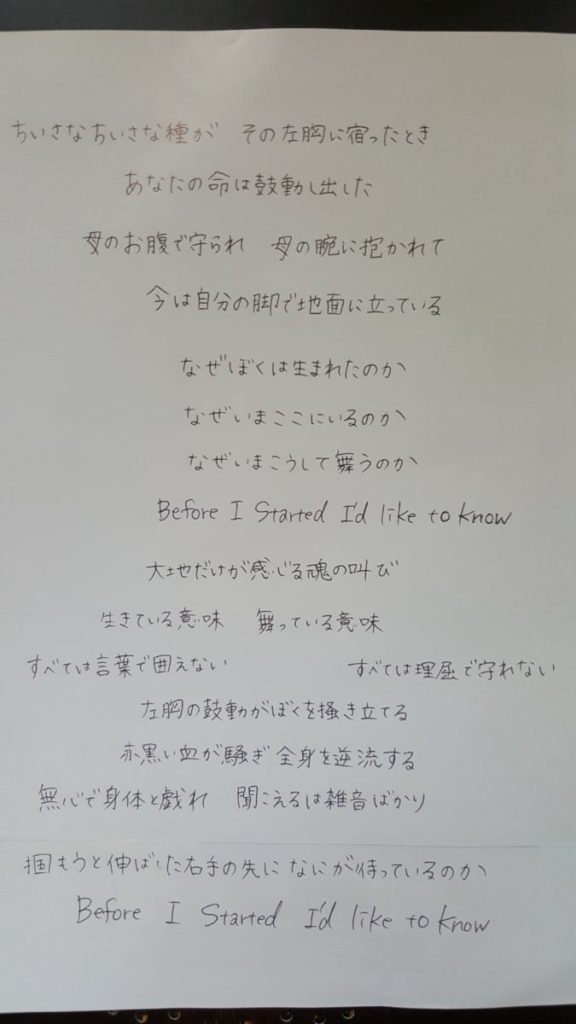 ちいさなちいさな種が　その左胸に宿ったとき
あなたの命は鼓動し出した
母のお腹で守られ　母の腕に抱かれて
今は自分の脚で地面に立っている
なぜぼくは生まれたのか
なぜいまここにいるのか
なぜいまこうして舞うのか
Before I Started I'd like to know
大地だけが感じる魂の叫び
生きている意味　舞っている意味
すべては言葉で囲えない　すべては理屈で守れない
左胸の鼓動がぼくを掻き立てる
赤黒い血が騒ぎ 全身を逆流する
無心で身体と戯れ　聞こえるは雑音ばかり
掴もうと伸ばした右手の先に なにが待っているのか
Before I Started I'd like to know